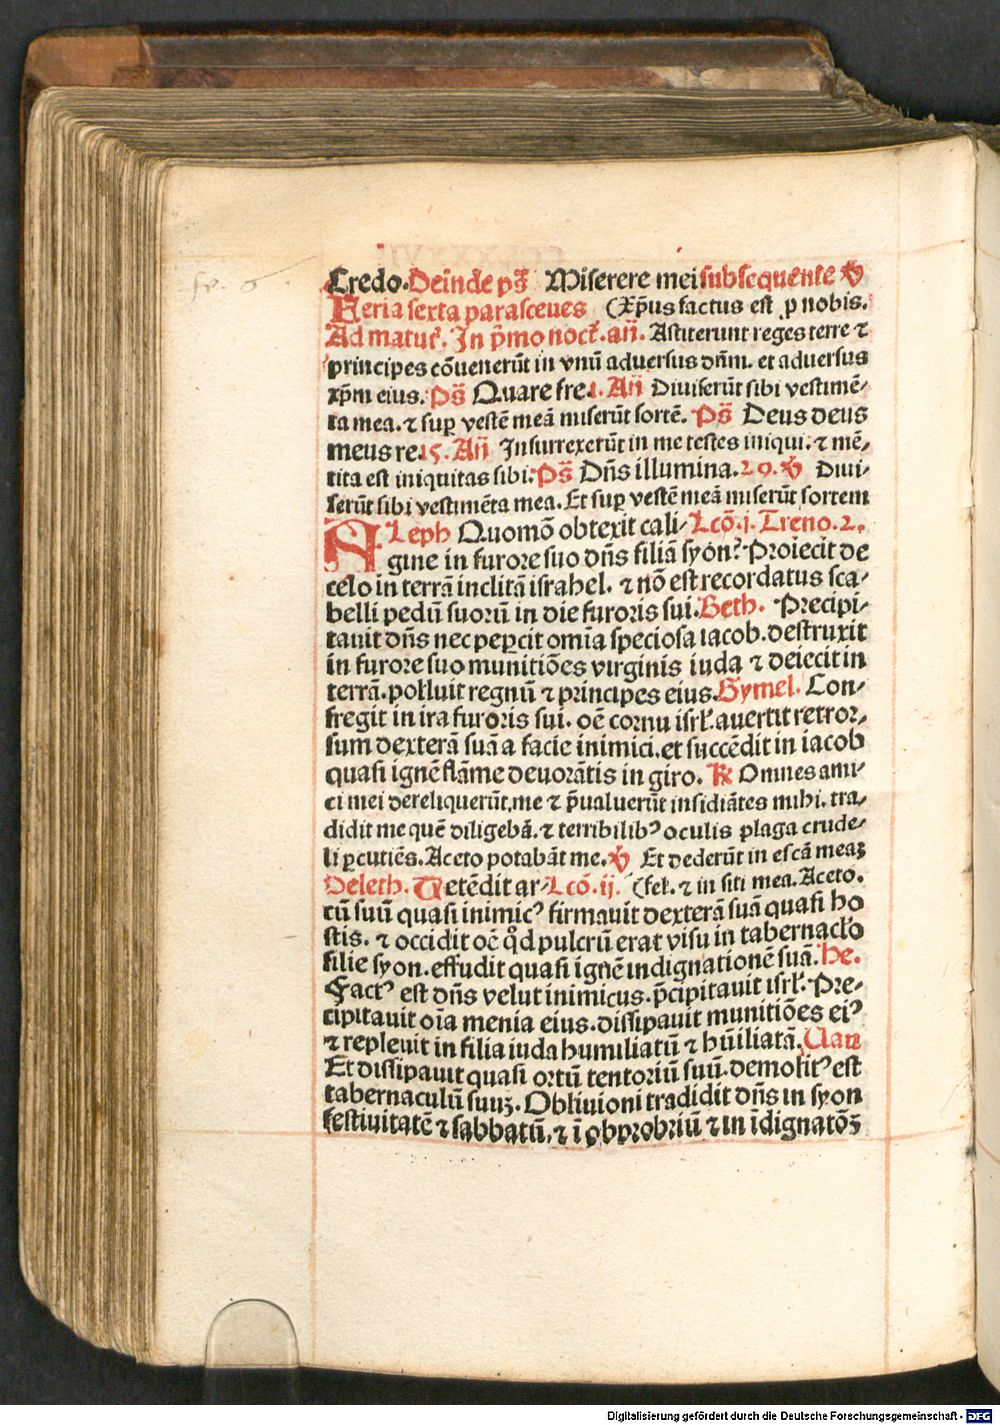 fe. 6
Credo. Deinde ps̄ Miserere mei subsequente ℣
Feria sexta parasceues (Xp̄us factus est ꝓ nobis.
Ad matut̄. In p̄mo noct̄. an̄. Astiterunt reges terre ⁊
principes cōuenerūt in vnū aduersus dn̄m. et aduersus
xp̄m eius. Ps̄ Quare fre. 1. An̄ Diuiserūt sibi vestimē-
ta mea. ⁊ suꝑ vestē meā miserūt sortē. Ps̄ Deus deus
meus re. 15. An̄ Insurrexerūt in me testes iniqui. ⁊ mē-
tita est iniquitas sibi. Ps̄ Dn̄s illumina. 29. ℣ Diui-
serūt sibi vestimēta mea. Et suꝑ vestē meā miserūt sortem
ALeph Quomō obtexit cali- Lcō. j. Treno. 2.
gine in furore suo dn̄s filiā syon? Proiecit de
celo in terrā inclitā israhel. ⁊ nō est recordatus sca-
belli pedū suorū in die furoris sui. Beth. Precipi-
tauit dn̄s nec peꝑcit om̄ia speciosa iacob. destruxit
in furore suo munitiōes virginis iuda ⁊ deiecit in
terrā. polluit regnū ⁊ principes eius. Gymel. Con-
fregit in ira furoris sui. oē cornu isrl̄. auertit retror-
sum dexterā suā a facie inimici. et succēdit in iacob
quasi ignē flāme deuorātis in giro. ℟ Omnes ami-
ci mei dereliquerūt me ⁊ p̄ualuerūt insidiātes mihi. tra-
didit me quē diligebā. ⁊ terribilibꝰ oculis plaga crude-
li ꝑcutiēs. Aceto potabāt me. ℣ Et dederūt in escā meaꝫ
Deleth. Tetēdit ar- Lcō. ij. (fel. ⁊ in siti mea. Aceto.
cū suū quasi inimicꝰ firmauit dexterā suā quasi ho
stis. ⁊ occidit oē qd̄ pulcrū erat visu in tabernacl̄o
filie syon. effudit quasi ignē indignationē suā. He.
Factꝰ est dn̄s velut inimicus. p̄cipitauit isrl̄. Pre-
cipitauit oīa menia eius. dissipauit munitiōes eiꝰ
⁊ repleuit in filia iuda humiliatū ⁊ hūiliatā. Uau
Et dissipauit quasi ortū tentoriū suū. demolitꝰ est
tabernaculū suuꝫ. Obliuioni tradidit dn̄s in syon
festiuitatē ⁊ sabbatū. ⁊ ī obprobriū ⁊ in īdignatōꝫ
Digitalisierung gefördert durch die Deutsche Forschungsgemeinschaft - DFG